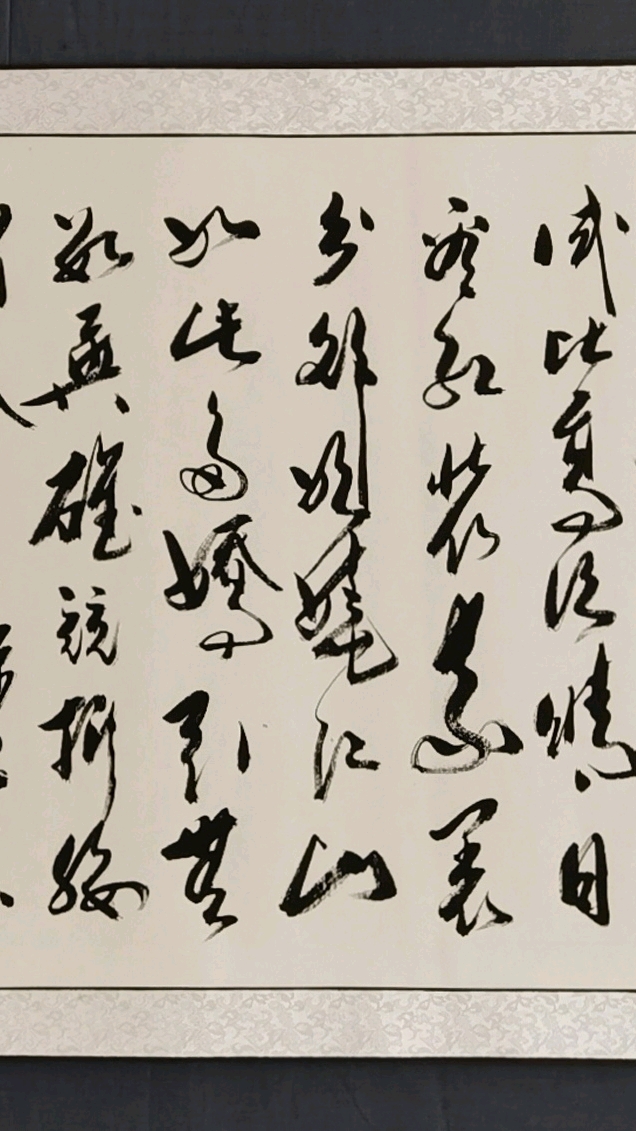 试比高须晴日
看红装素裹
分外妖娆江山
如此多娇引无
数英雄竞折腰